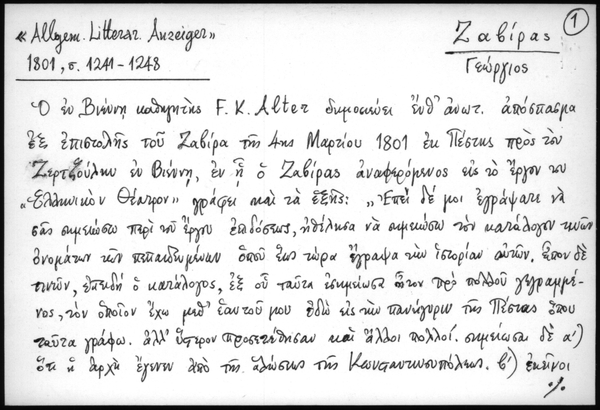 1
« Allgem. Litterar. Anzeiger»
Ζαβίρας
1801, σ. 1241-1248
Γεώργιος
Ὁ ἐν Βιέννῃ καθηγητὴς F. K. Alter δημοσιεύει ἔνθ' ἀνωτ. ἀπόσπασμα
ἐξ ἐπιστολῆς τοῦ Ζαβίρα τῆς 4ης Μαρτίου 1801 ἐκ Πέστης πρὸς τὸν
ἐν Βιέννῃ, ἐν ᾗ ὁ Ζαβίρας ἀναφερόμενος εἰς τὸ ἔργον του
«Ἑλληνικὸν Θέατρον» γράφει καὶ τὰ ἑξῆς: "Ἐπεὶ δέ μοι ἐγράψατε νὰ
σᾶς σημειώσω περὶ τοῦ ἔργου ἐπιδόσεως, ἠθέλησα νὰ σημειώσω τὸν κατάλογον τινῶν
ὀνομάτων τῶν πεπαιδευμένων ὁποῦ ἕως τώρα ἔγραψα τὴν ἱστορίαν αὐτῶν, δὲ
τινῶν, ἐπειδὴ ὁ κατάλογος, ἐξ οὗ ταῦτα ἐσημείωσα ἦτον πρὸ πολλοῦ γεγραμμέ-
νος, τὸν ὁποῖον ἔχω μεθ' ἑαυτοῦ μου ἐδῶ εἰς τὴν πανήγυριν τῆς Πέστας ὅπου
ταῦτα γράφω. ἀλλ' ὕστερον προσετέθησαν καὶ ἄλλοι πολλοί. σημείωσαι δὲ α')
ὅτι ἡ ἀρχὴ ἔγεινεν ἀπὸ τῆς ἁλώσεως τῆς Κωνσταντινουπόλεως. β') ἐκεῖνοι
./.